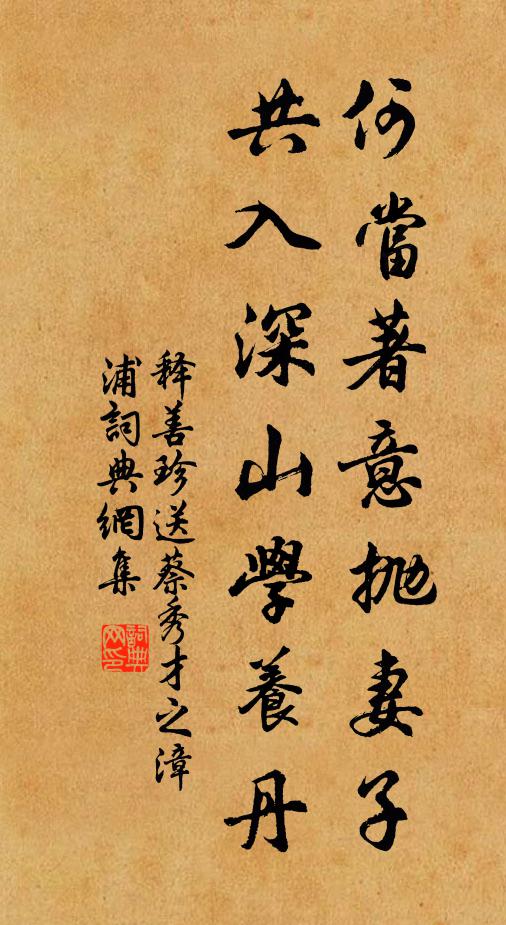 何當著意抛妻子
共入深山學養丹
释善珍送蔡秀才之漳
浦詞典網集
詞典
网印